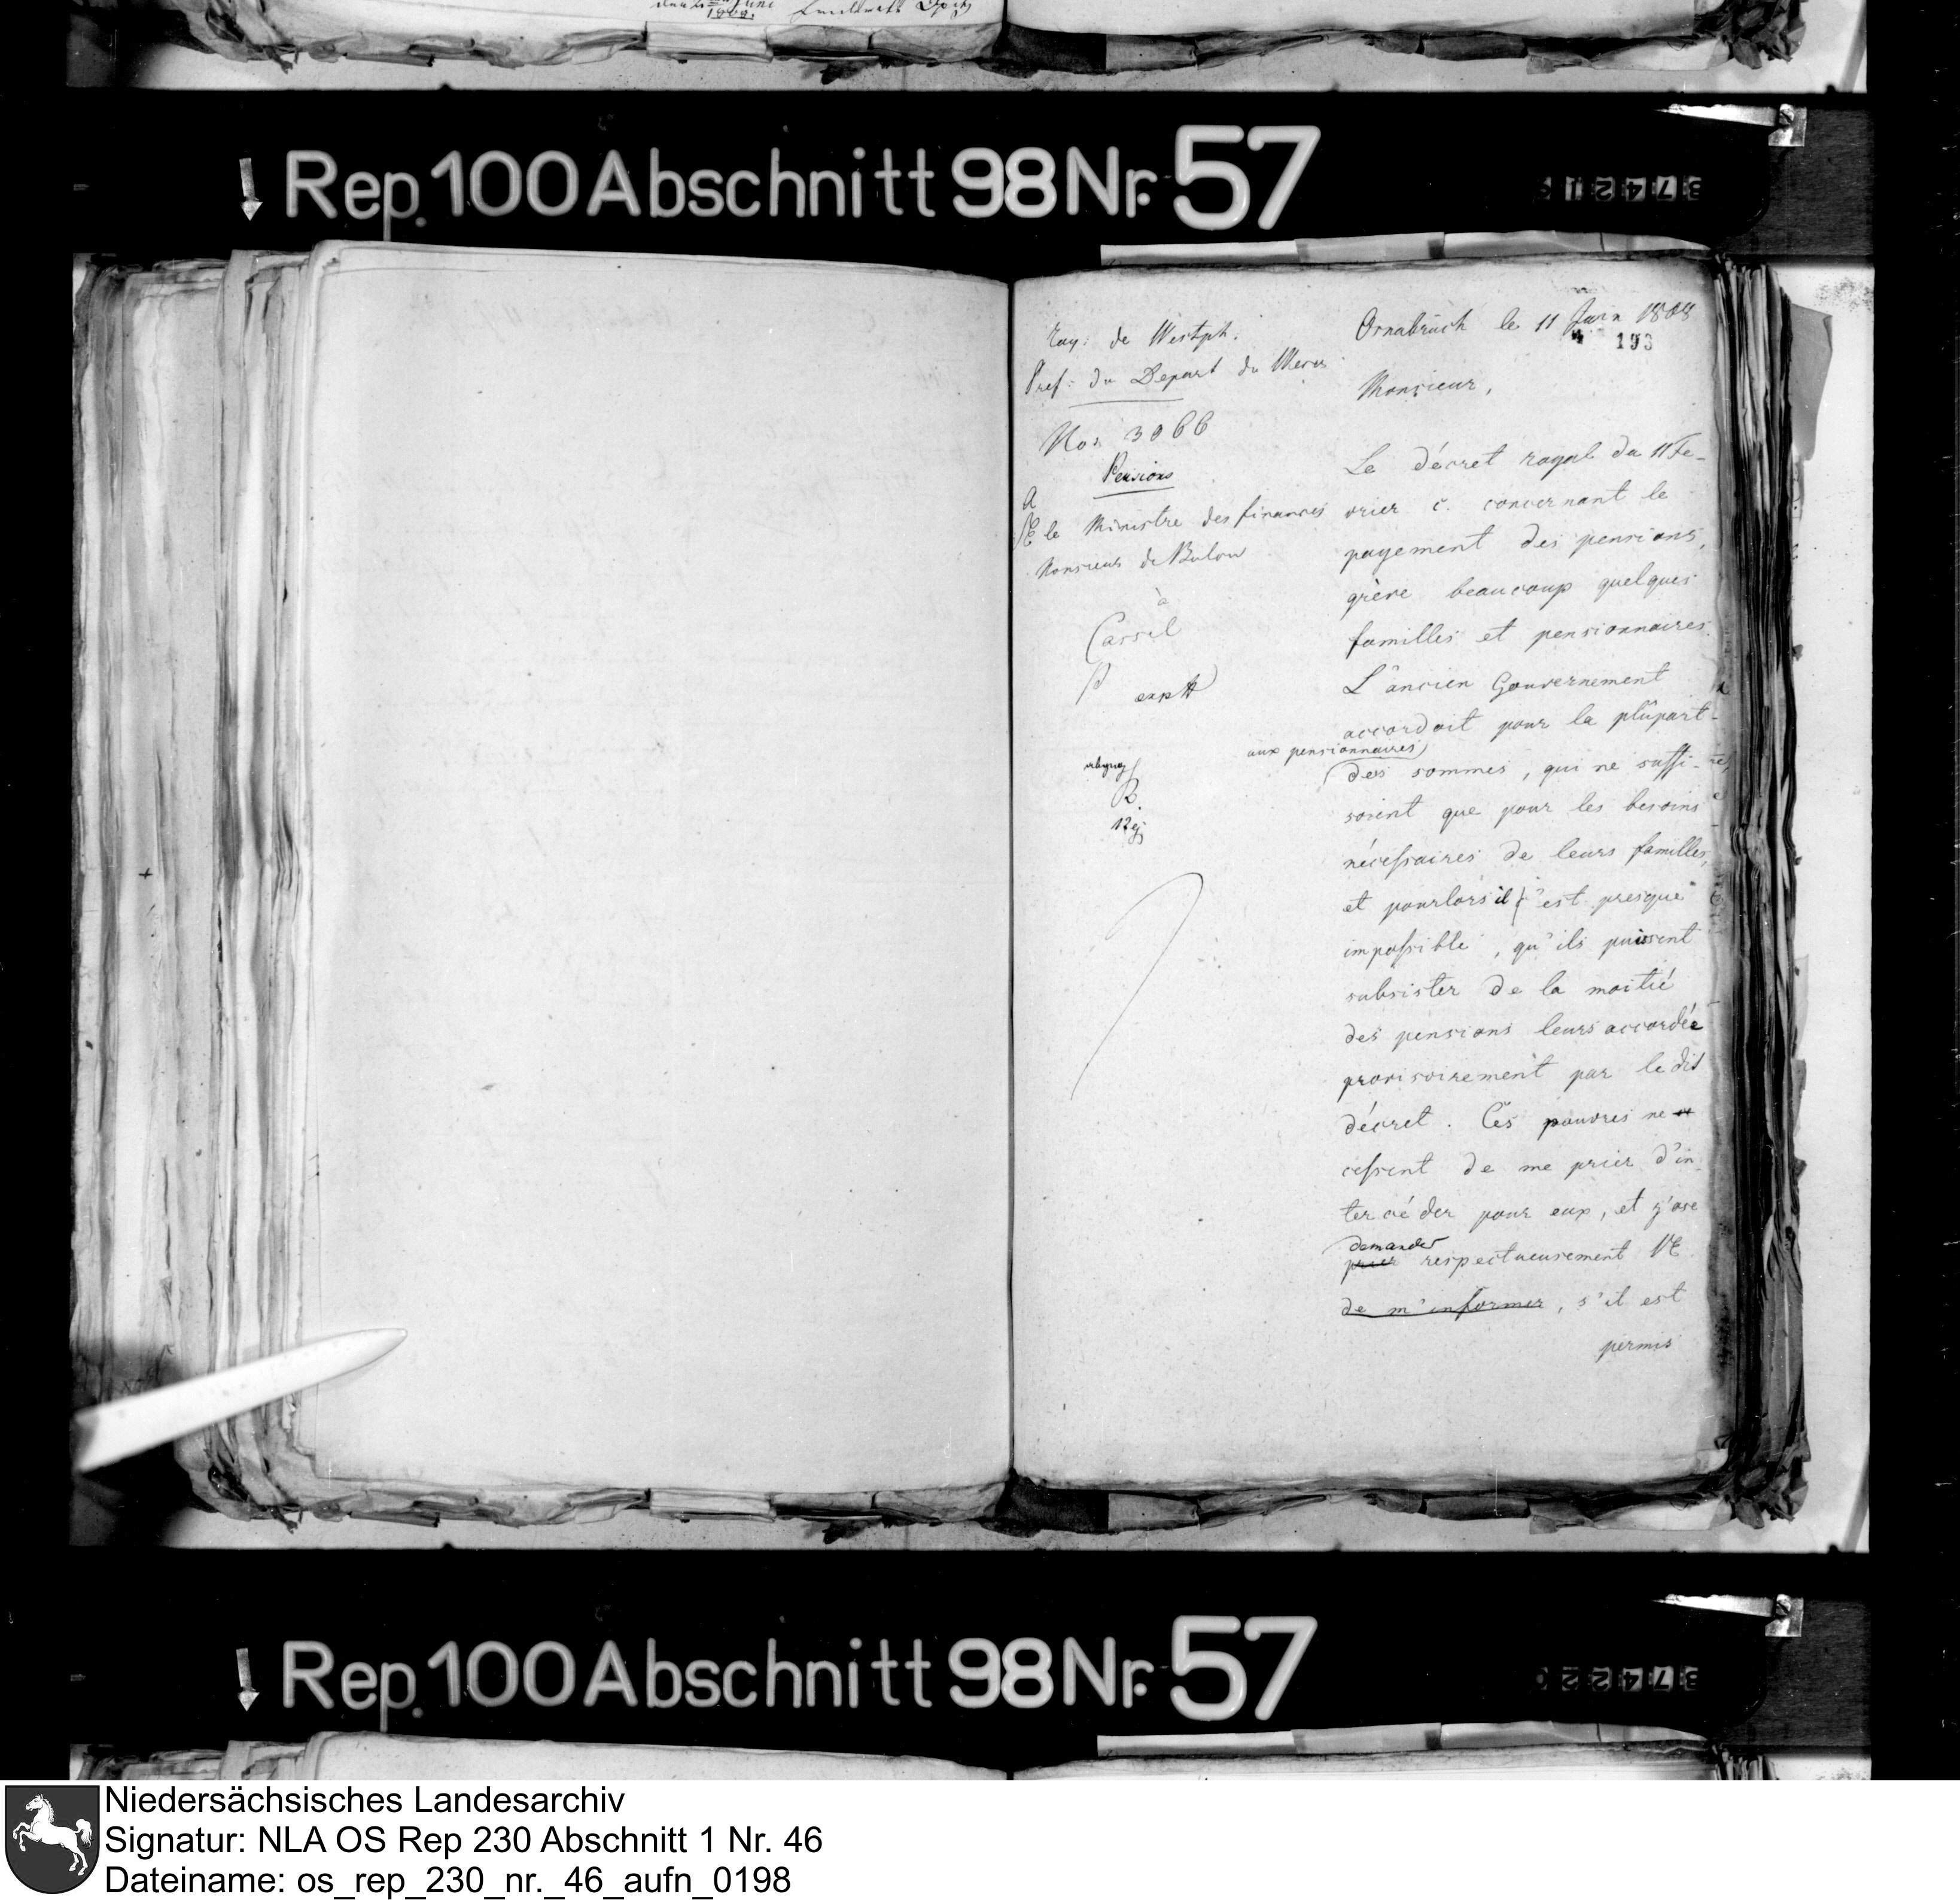 1808.
Rep. 100 Abschnitt 98 Nr. 57
Roy: de Westph.
Pref: du Depart du Weser
Nos 3066
Pensions
A
SE le Ministre des finances
Monsieur de Bulow
à
Cassel
exp
R.
Osnabrück le 11 Juin 1808
193
Monsieur,
Le décret royal du 11 Fe-
vrier c. concernant le
payement des pensions,
grève beaucoup quelques
familles et pensionnaires.
L'ancien Gouvernement
accordoit pour la plûpart
aux pensionnaires
des sommes, qui ne suffi-
soient que pour les besoins
nécessaires de leurs familles,
et pourlors il est presque
impossible, qu'ils puissent
subsister de la moitié
des pensions leurs accordée
provisoirement par le dit
décret. Ces pauvres ne
cessent de me prier d'in-
tercéder pour eux, et j'ose
demander
prier respectueusement VE
de m'informer, s'il est
permis
Rep. 100 Abschnitt 98 Nr. 57
Niedersächsisches Landesarchiv
Signatur: NLA OS Rep 230 Abschnitt 1 Nr. 46
Dateiname: os_rep_230_nr._46_aufn_0198